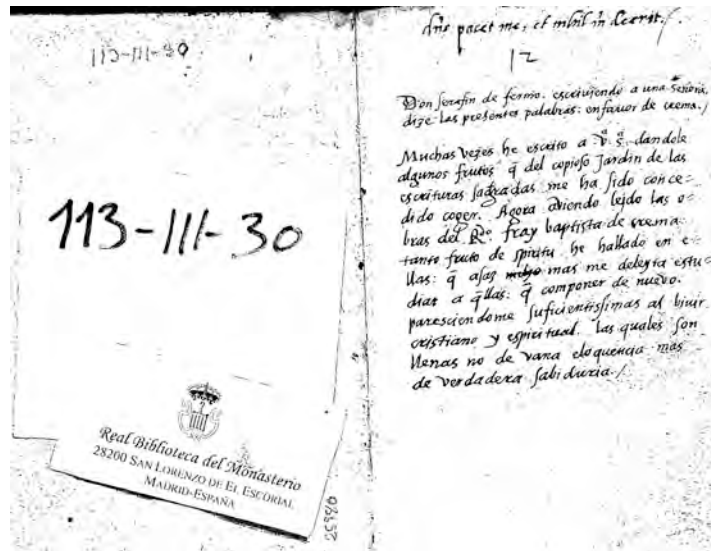 113-III-30
113-III-30
Real Biblioteca del Monasterio
28200 SAN LORENZO DE EL ESCORIAL
MADRID-ESPAÑA
dn̄s pacet me, et nihil m̄ deerit./.
12
Don serafin de fermo. escriuiendo a una señora,
dize las presentes palabras: en fauor de crema./
Muchas vezes he escrito a V. S. dandole
algunos frutos q̄ del copioso Jardin de las
escrituras sagradas me ha sido conce=
dido coger. Agora aviendo leydo las o=
bras del Rdo. fray baptista de crema
tanto fruto de spiritu he hallado en e=
llas: q̄ asas mas me deleyta estu=
diar a q̄llas: q̄ componer de nuevo.
paresciendome suficientissimas al biuir
cristiano y espiritual. las quales son
llenas no de vana eloquencia mas
de verdadera sabiduria./